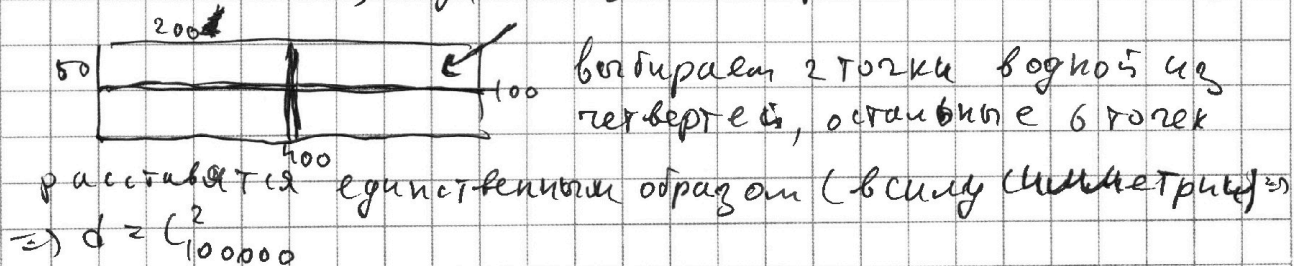 200
50
100
400
выбираем 2 точки в одной из
четвертей, остальные 6 точек
расставятся единственным образом (в силу симметрии) ⇒
⇒ d = C²₁₀₀₀₀₀